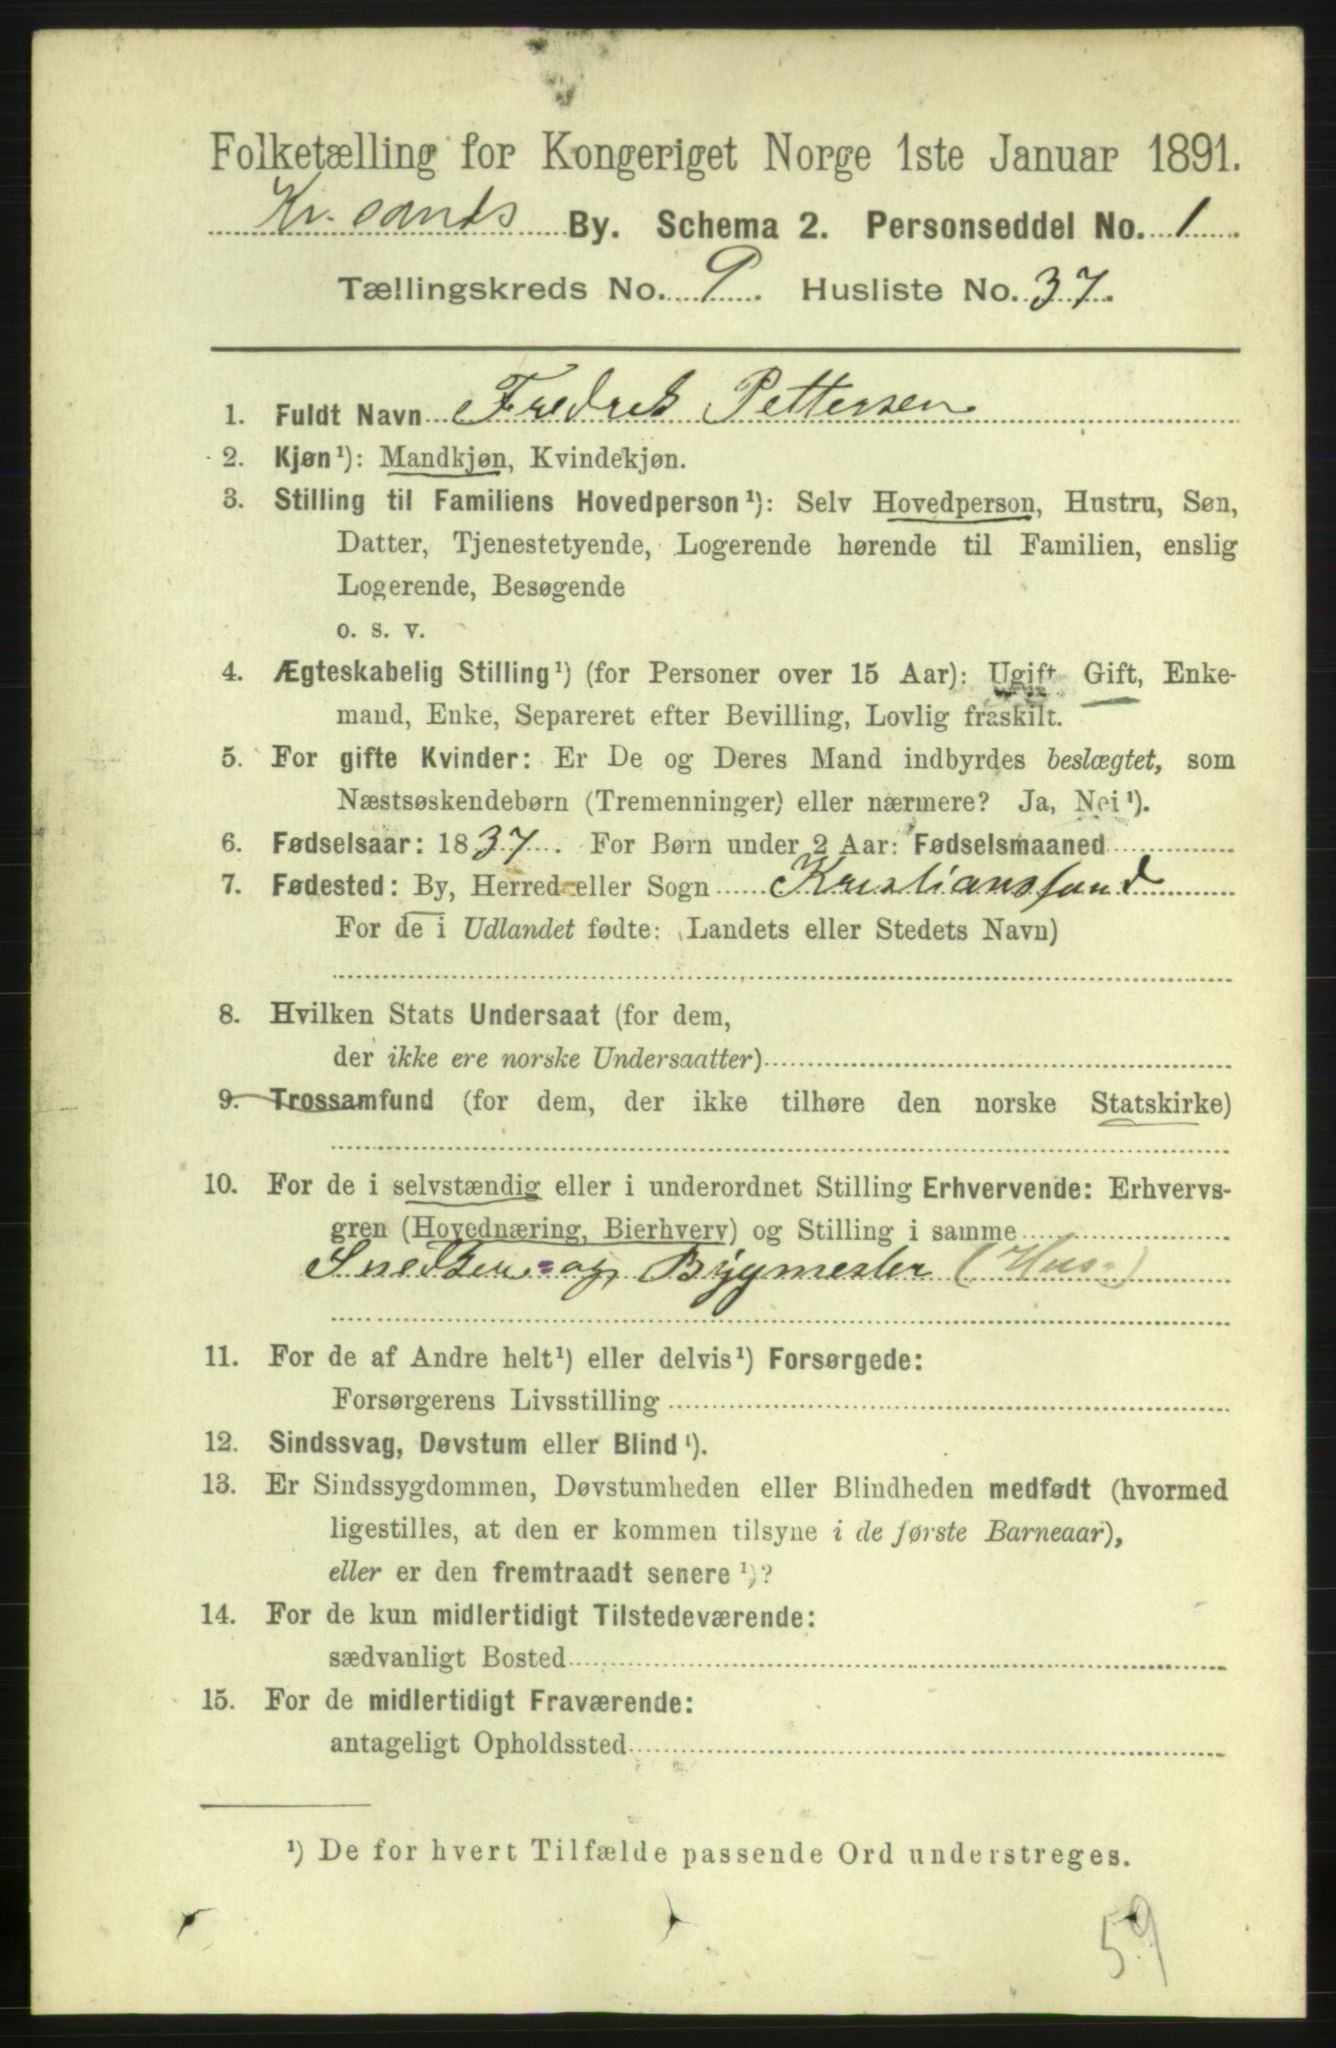 Folketælling for Kongeriget Norge 1ste Januar 1891.
Kr.sands By. Schema 2. Personseddel No. 1
Tællingskreds No. 9. Husliste No. 37.
1. Fuldt Navn Fredrik Pettersen
2. Kjøn¹): Mandkjøn, Kvindekjøn.
3. Stilling til Familiens Hovedperson¹): Selv Hovedperson, Hustru, Søn,
Datter, Tjenestetyende, Logerende hørende til Familien, enslig
Logerende, Besøgende
o. s. v.
4. Ægteskabelig Stilling¹) (for Personer over 15 Aar): Ugift Gift, Enke-
mand, Enke, Separeret efter Bevilling, Lovlig fraskilt.
5. For gifte Kvinder: Er De og Deres Mand indbyrdes beslægtet, som
Næstsøskendebørn (Tremenninger) eller nærmere? Ja, Nei¹).
6. Fødselsaar: 1837. For Børn under 2 Aar: Fødselsmaaned
7. Fødested: By, Herred eller Sogn Kristianssand
For de i Udlandet fødte: Landets eller Stedets Navn)
8. Hvilken Stats Undersaat (for dem,
der ikke ere norske Undersaatter)
9. Trossamfund (for dem, der ikke tilhøre den norske Statskirke)
10. For de i selvstændig eller i underordnet Stilling Erhvervende: Erhvervs-
gren (Hovednæring, Bierhverv) og Stilling i samme
Snedker- og Bygmester (Hus-)
11. For de af Andre helt¹) eller delvis¹) Forsørgede:
Forsørgerens Livsstilling
12. Sindssvag, Døvstum eller Blind¹).
13. Er Sindssygdommen, Døvstumheden eller Blindheden medfødt (hvormed
ligestilles, at den er kommen tilsyne i de første Barneaar),
eller er den fremtraadt senere¹)?
14. For de kun midlertidigt Tilstedeværende:
sædvanligt Bosted
15. For de midlertidigt Fraværende:
antageligt Opholdssted
¹) De for hvert Tilfælde passende Ord understreges.
59